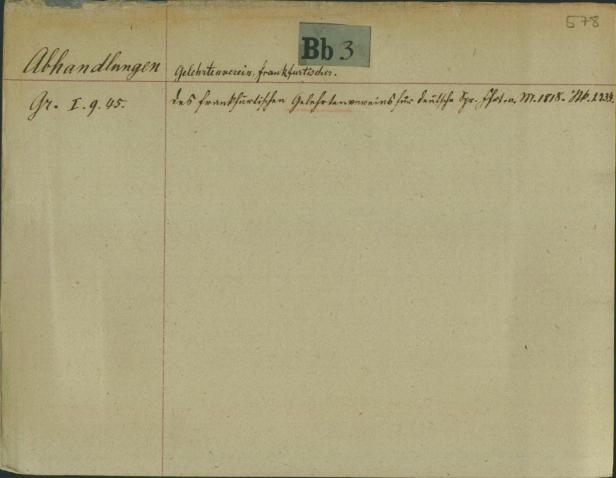 578
Bb 3
Abhandlungen Gelehrtenverein, frankfurtischer.
Gr. I. 9. 45. des frankfurtischen Gelehrtenvereins für deutsche Spr. M. 1818.